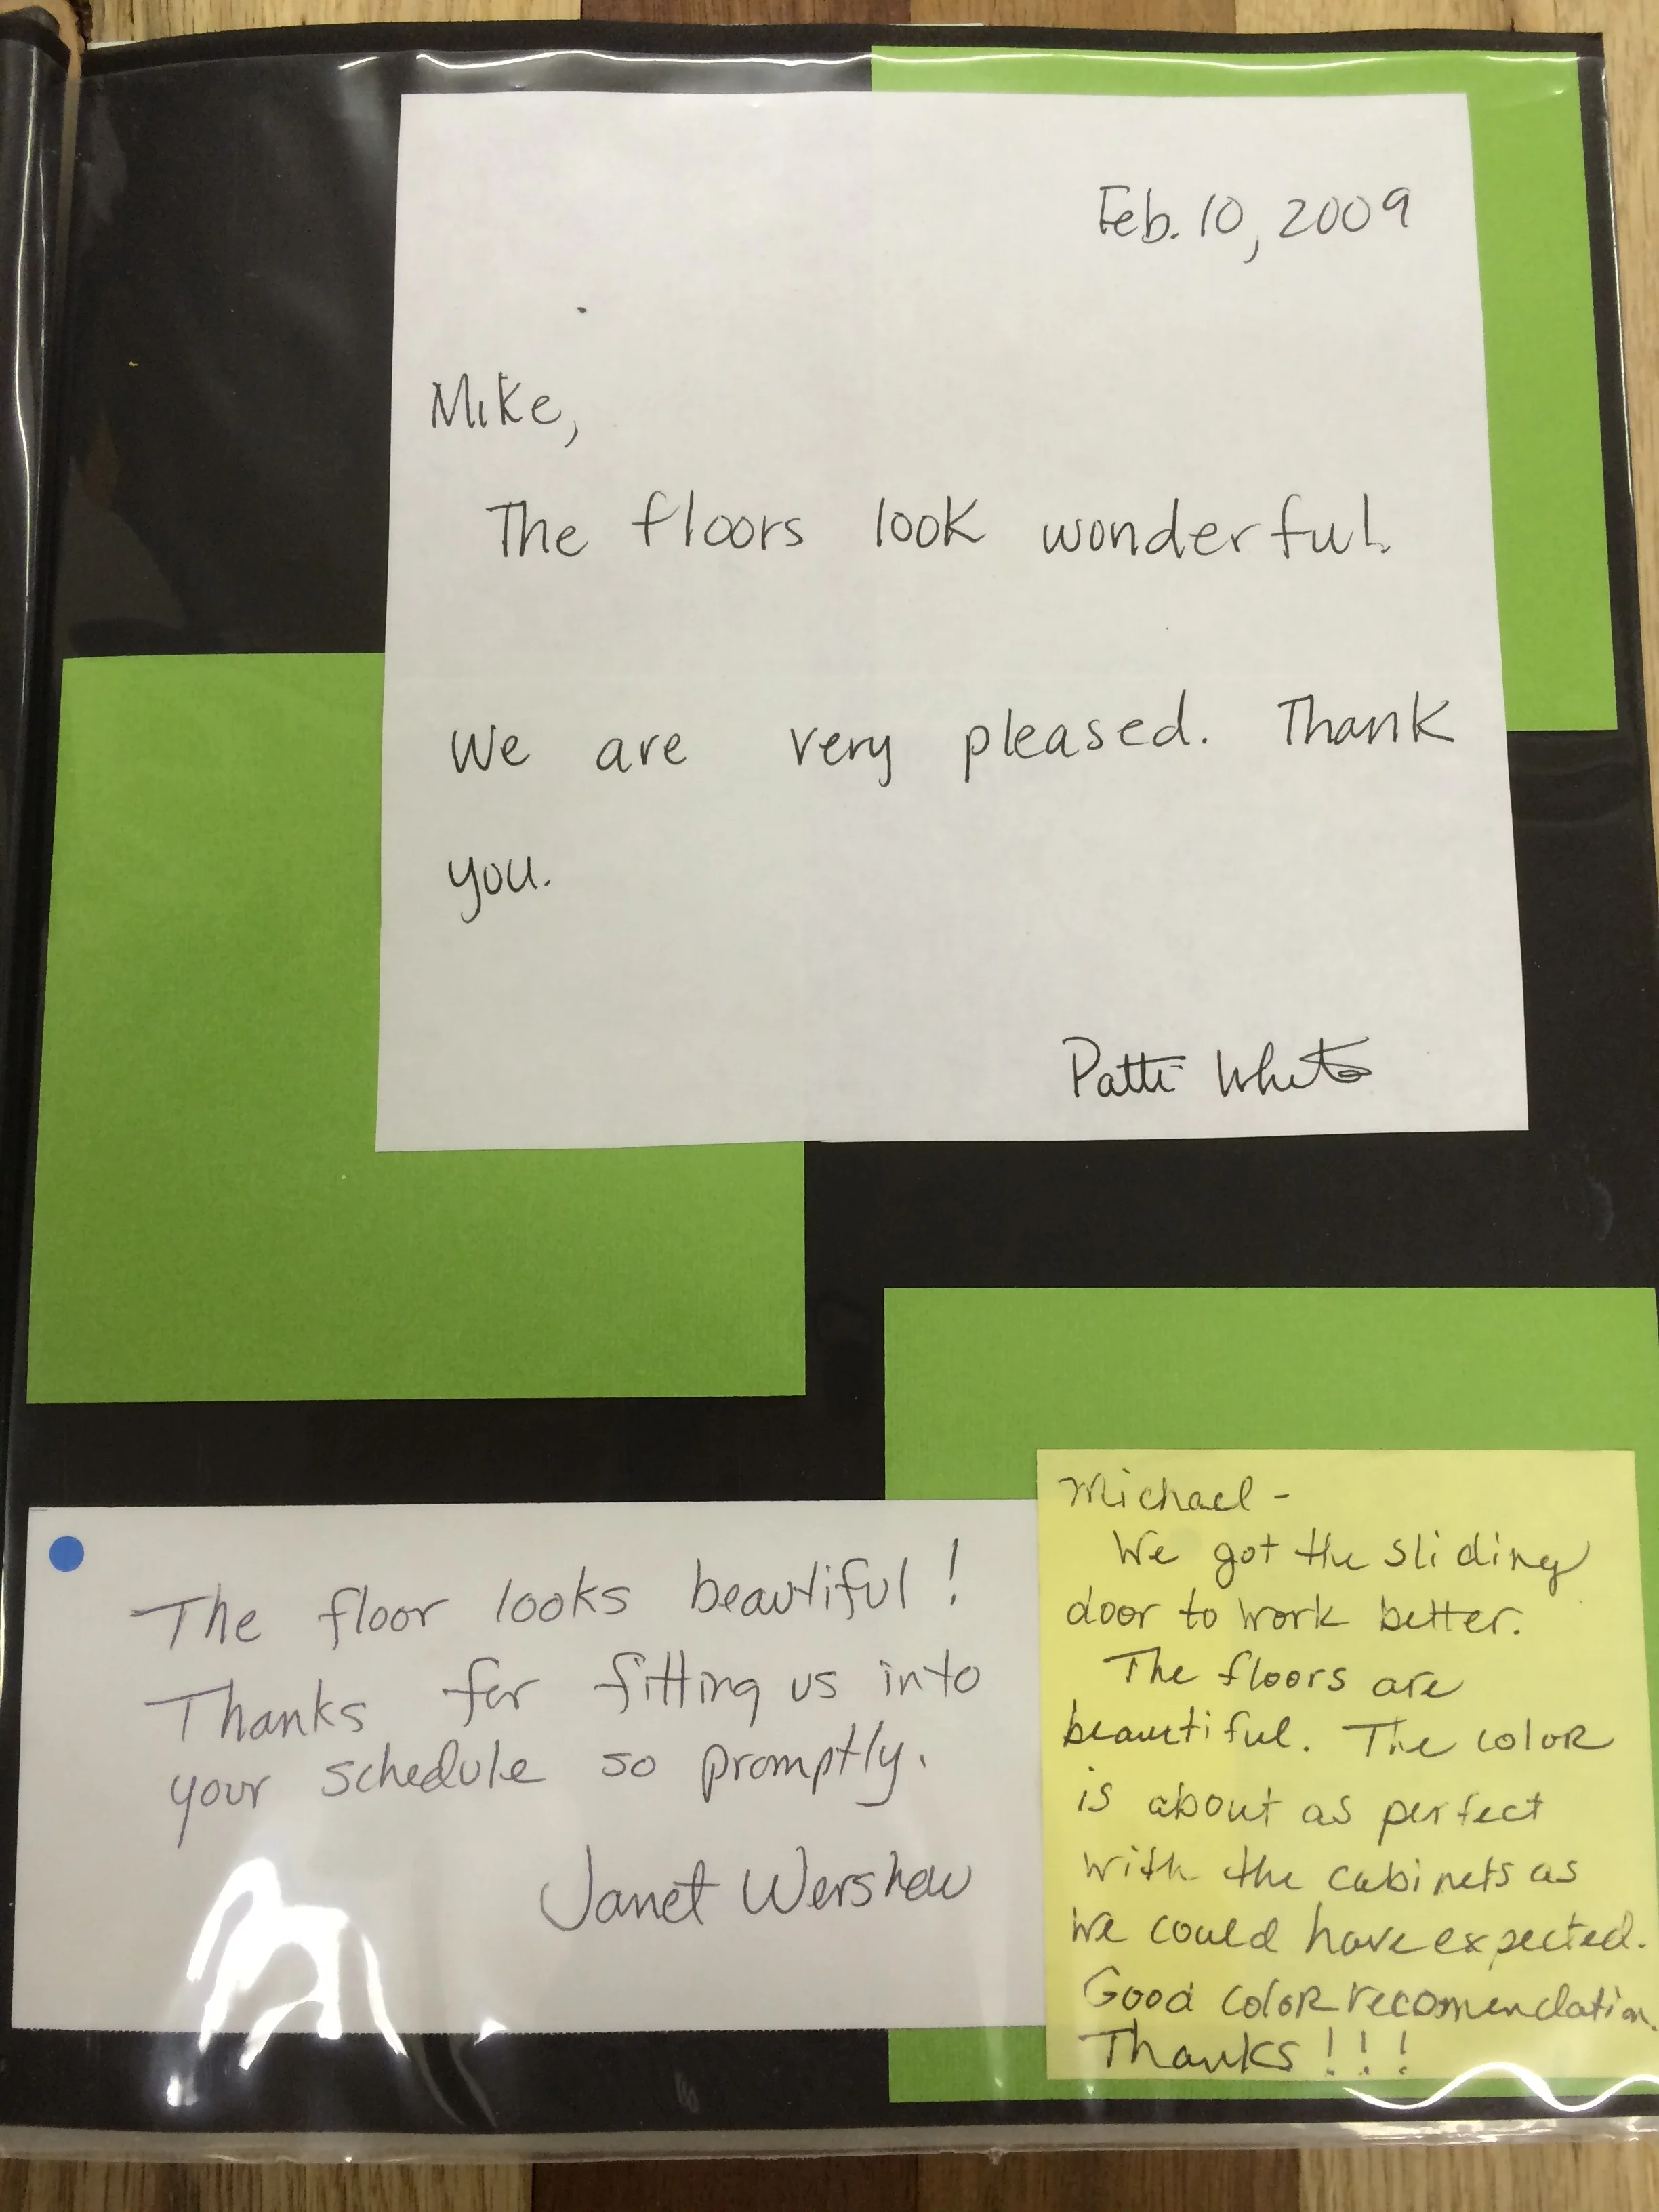 Feb. 10, 2009
Mike,
The floors look wonderful.
We are very pleased. Thank
you.
Patti White
The floor looks beautiful!
Thanks for fitting us into
your schedule so promptly.
Janet Wershaw
Michael -
We got the sliding
door to work better.
The floors are
beautiful. The color
is about as perfect
with the cabinets as
we could have expected.
Good color recomendation.
Thanks!!!